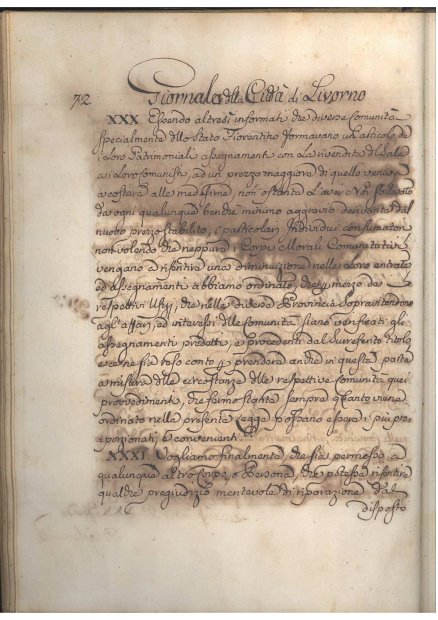 72 Giornale della Città di Livorno
XXX. Essendo altresì informati che diverse Comunità
specialmente dello Stato Fiorentino formavano un Capitolo de
i Loro Patrimoniali assegnamenti con La rivendita del Sale
a i Loro Comunisti, ad un prezzo maggiore di quello veniva
a costare alle medesime, non ostante L'aver Noi sollevato
da ogni qualunque benché minimo aggravio derivante dal
nuovo prezzo stabilito, i particolari Individui consumatori
non volendo che neppure i Corpi Morali Comunitativi
vengano a risentire una diminuzione nelle Loro entrate
ed assegnamenti abbiamo ordinato, che per mezzo de
respettivi Ufizj, che nelle diverse Provincie sopraintendono
agl'affari, ed interessi delle Comunità siano verificati gli
assegnamenti predetti, e procedenti dal surreferito titolo
e ce ne sia reso conto per prendere anche in questa parte
a misura delle circostanze delle respettive Comunità quei
provvedimenti che fermo stante sempre quanto viene
ordinato nella presente Legge possano essere i più pro-
porzionati, e convenienti.
XXXI. Vogliamo finalmente, che sia permesso a
qualunque altro Corpo, o Persona, che potesse risentire
qualche pregiudizio meritevole di riparazione dal
disposto